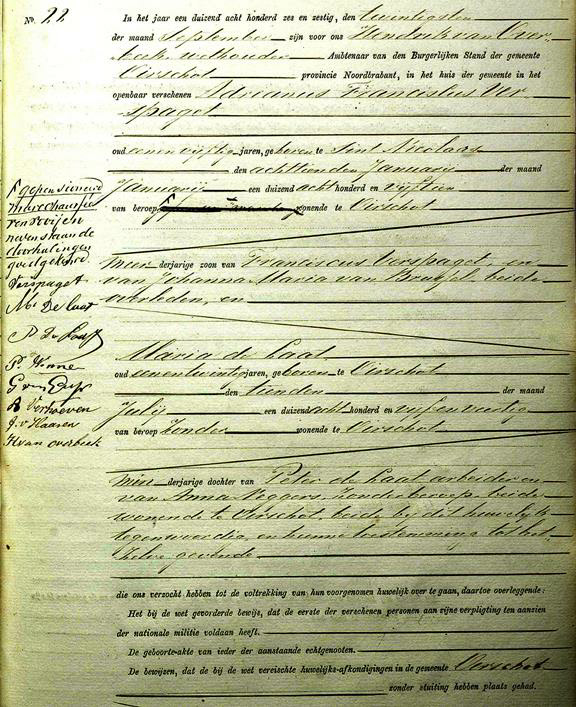 No. 22
In het jaar een duizend acht honderd zes en zestig, den twintigsten
der maand September zijn voor ons Hendrik van Over-
beek, wethouder Ambtenaar van den Burgerlijken Stand der gemeente
Oirschot provincie Noordbrabant, in het huis der gemeente in het
openbaar verschenen Adrianus Franciscus Ver
spaget
oud eenenvijftig jaren, geboren te Sint Nicolaas
den achttienden Januarij der maand
Januarij een duizend acht honderd en vijftien
van beroep wonende te Oirschot
meerderjarige zoon van Franciscus Verspaget, en
van Johanna Maria van Brussel beide
overleden, en
Maria de Laat
oud eenentwintig jaren, geboren te Oirschot
den tienden der maand
Julij een duizend acht honderd en vijfenveertig
van beroep Zonder wonende te Oirschot
minderjarige dochter van Peter de Laat arbeider en
van Anna Neggers, Zonder beroep, beide
wonende te Oirschot, beide bij dit huwelijk
tegenwoordig, en hunne toestemming tot het
zelve gevende
die ons verzocht hebben tot de voltrekking van hun voorgenomen huwelijk over te gaan, daartoe overleggende:
Het bij de wet gevorderde bewijs, dat de eerste der verschenen personen aan zijne verpligting ten aanzien
der nationale militie voldaan heeft.
De geboorte-akte van ieder der aanstaande echtgenooten.
De bewijzen, dat de bij de wet vereischte huwelijks-afkondigingen in de gemeente Oirschot
zonder stuiting hebben plaats gehad.
gepensioneerd
marechaussee
nevenstaande
doorhalingen
goedgekeurd
Verspaget
M. De laat
P. Hinne
A Verhoeven
J. v Haaren
H van overbeek